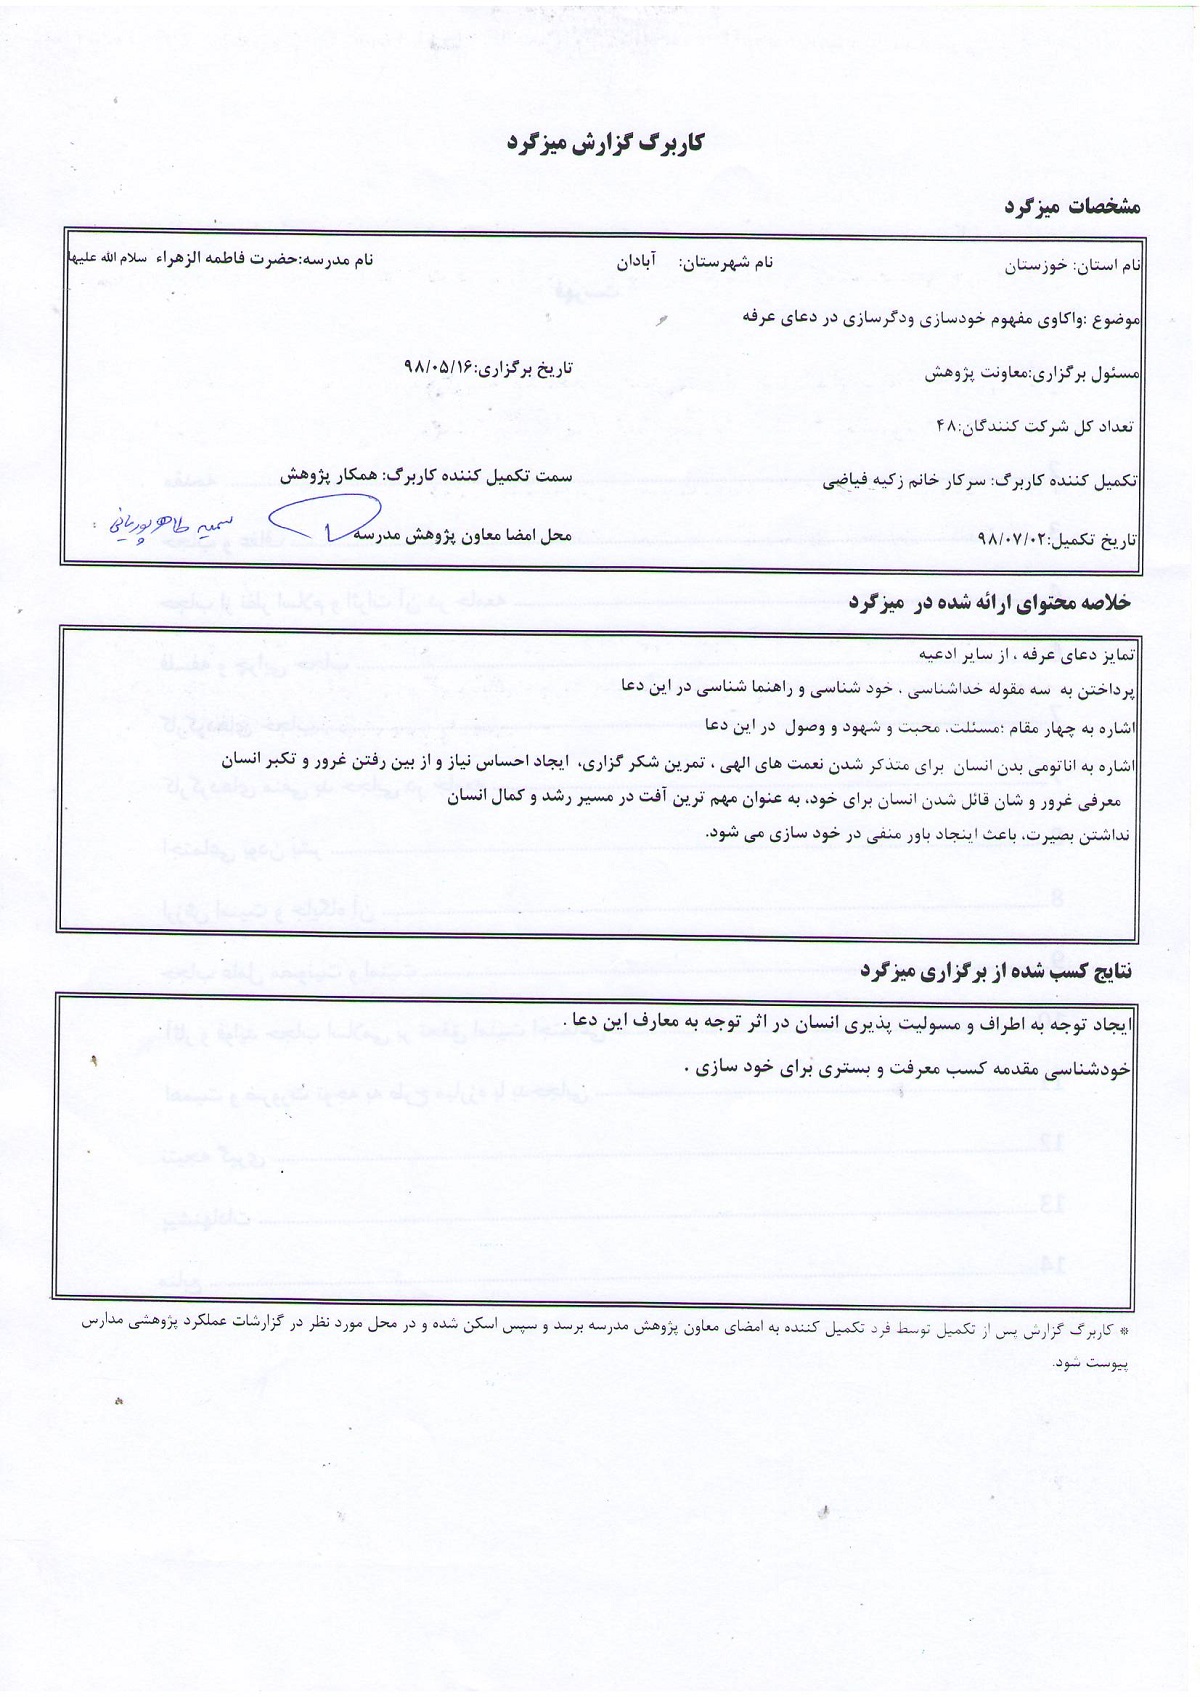 کاربرگ گزارش میزگرد
مشخصات میزگرد
نام استان: خوزستان نام شهرستان: آبادان نام مدرسه:حضرت فاطمه الزهراء سلام الله علیها
موضوع :واکاوی مفهوم خودسازی ودگرسازی در دعای عرفه
مسئول برگزاری:معاونت پژوهش تاریخ برگزاری:۹۸/۰۵/۱۶
تعداد کل شرکت کنندگان:۴۸
تکمیل کننده کاربرگ: سرکار خانم زکیه فیاضی سمت تکمیل کننده کاربرگ: همکار پژوهش
تاریخ تکمیل:۹۸/۰۷/۰۲ محل امضا معاون پژوهش مدرسه سمیه طاهرپوریانی :
خلاصه محتوای ارائه شده در میزگرد
تمایز دعای عرفه ، از سایر ادعیه
پرداختن به سه مقوله خداشناسی ، خود شناسی و راهنما شناسی در این دعا
اشاره به چهار مقام ؛مسئلت، محبت و شهود و وصول در این دعا
اشاره به اناتومی بدن انسان برای متذکر شدن نعمت های الهی ، تمرین شکر گزاری، ایجاد احساس نیاز و از بین رفتن غرور و تکبر انسان
معرفی غرور و شان قائل شدن انسان برای خود، به عنوان مهم ترین آفت در مسیر رشد و کمال انسان
نداشتن بصیرت، باعث اینجاد باور منفی در خود سازی می شود.
نتایج کسب شده از برگزاری میزگرد
ایجاد توجه به اطراف و مسولیت پذیری انسان در اثر توجه به معارف این دعا .
خودشناسی مقدمه کسب معرفت و بستری برای خود سازی .
* کاربرگ گزارش پس از تکمیل توسط فرد تکمیل کننده به امضای معاون پژوهش مدرسه برسد و سپس اسکن شده و در محل مورد نظر در گزارشات عملکرد پژوهشی مدارس
پیوست شود.